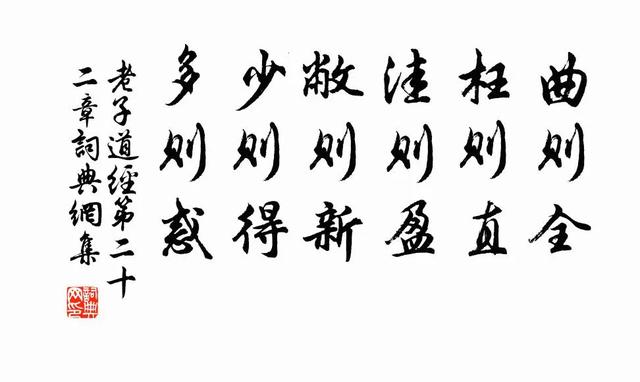 曲则全
枉则直
洼则盈
敝则新
少则得
多则惑
老子道經第二十
二章詞典網集
詞典
网印